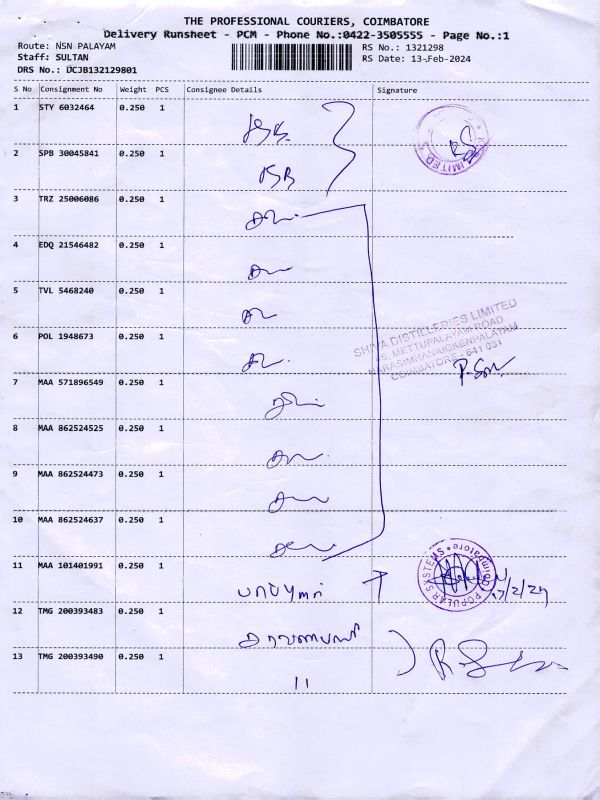 THE PROFESSIONAL COURIERS, COIMBATORE
Delivery Runsheet - PCM - Phone No.:0422-3505555 - Page No.:1
Route: NSN PALAYAM
RS No.: 1321298
Staff: SULTAN
RS Date: 13-Feb-2024
DRS No.: DCJB132129801
S No Consignment No Weight PCS Consignee Details Signature
1 STY 6032464 0.250 1
LIMITED
2 SPB 30045841 0.250 1
3 TRZ 25006086 0.250 1
4 EDQ 21546482 0.250 1
5 TVL 5468240 0.250 1
6 POL 1948673 0.250 1
SHIVA DISTILLERIES LIMITED
METTUPALAYAM ROAD
NARASIMHANAICKENPALAYAM
COIMBATORE - 641 031
7 MAA 571896549 0.250 1
8 MAA 862524525 0.250 1
9 MAA 862524473 0.250 1
10 MAA 862524637 0.250 1
11 MAA 101401991 0.250 1
POPULAR SYSTEMS * Coimbatore
12 TMG 200393483 0.250 1
13 TMG 200393490 0.250 1
11